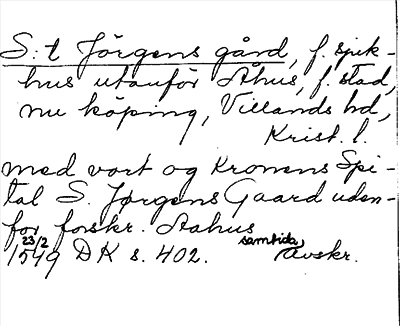 S:t Jörgens gård, f. sjuk-
hus utanför Åhus, f. stad,
nu köping, Villands hd,
Krist. l.
med vort og Kronens Spi-
tal S. Jørgens Gaard uden-
for forskr. Aahus
23/2 samtida,
1549 DK s. 402. Avskr.